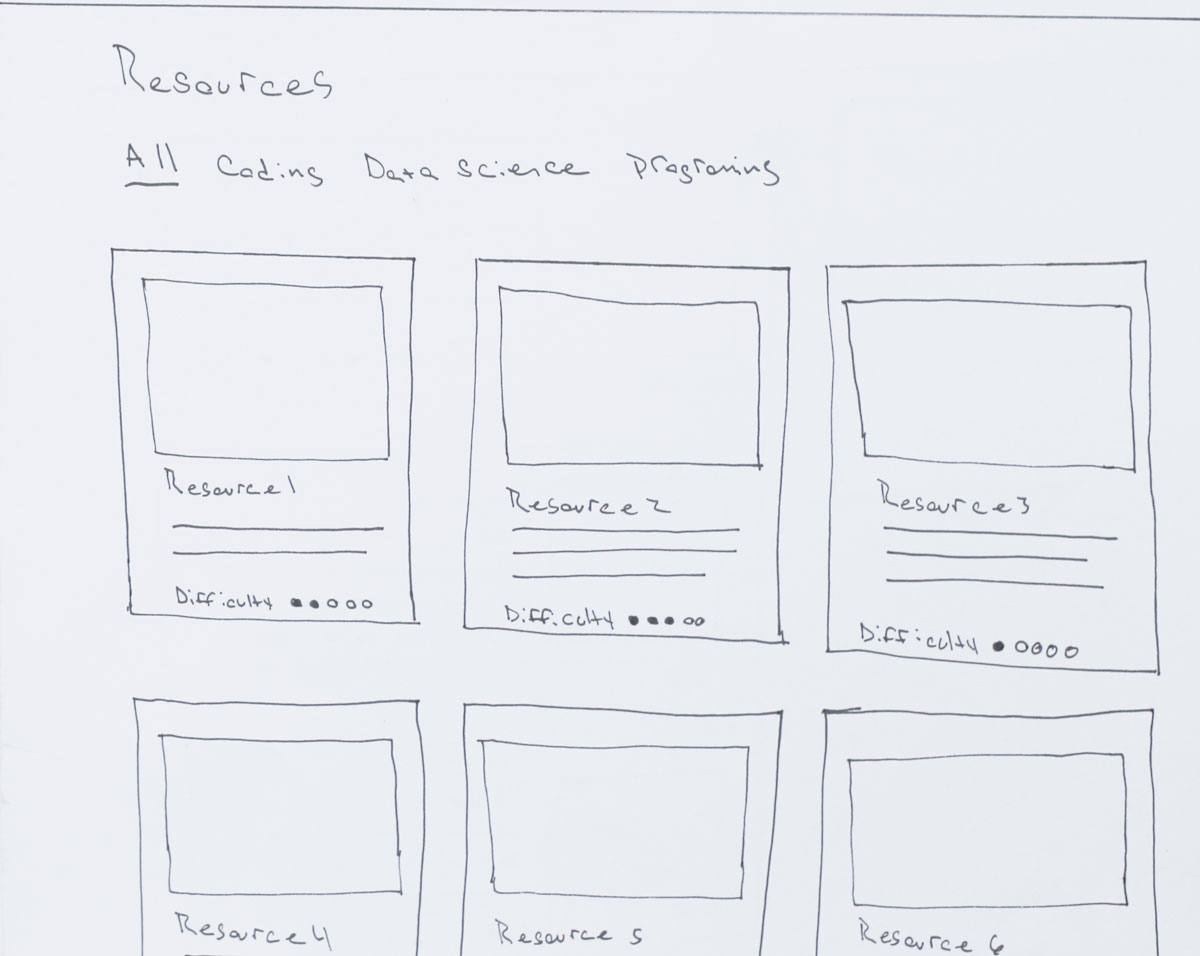 Resources
All Coding Data Science Programing
Resource 1
Difficulty
Resource 2
Difficulty
Resource 3
Difficulty
Resource 4
Resource 5
Resource 6